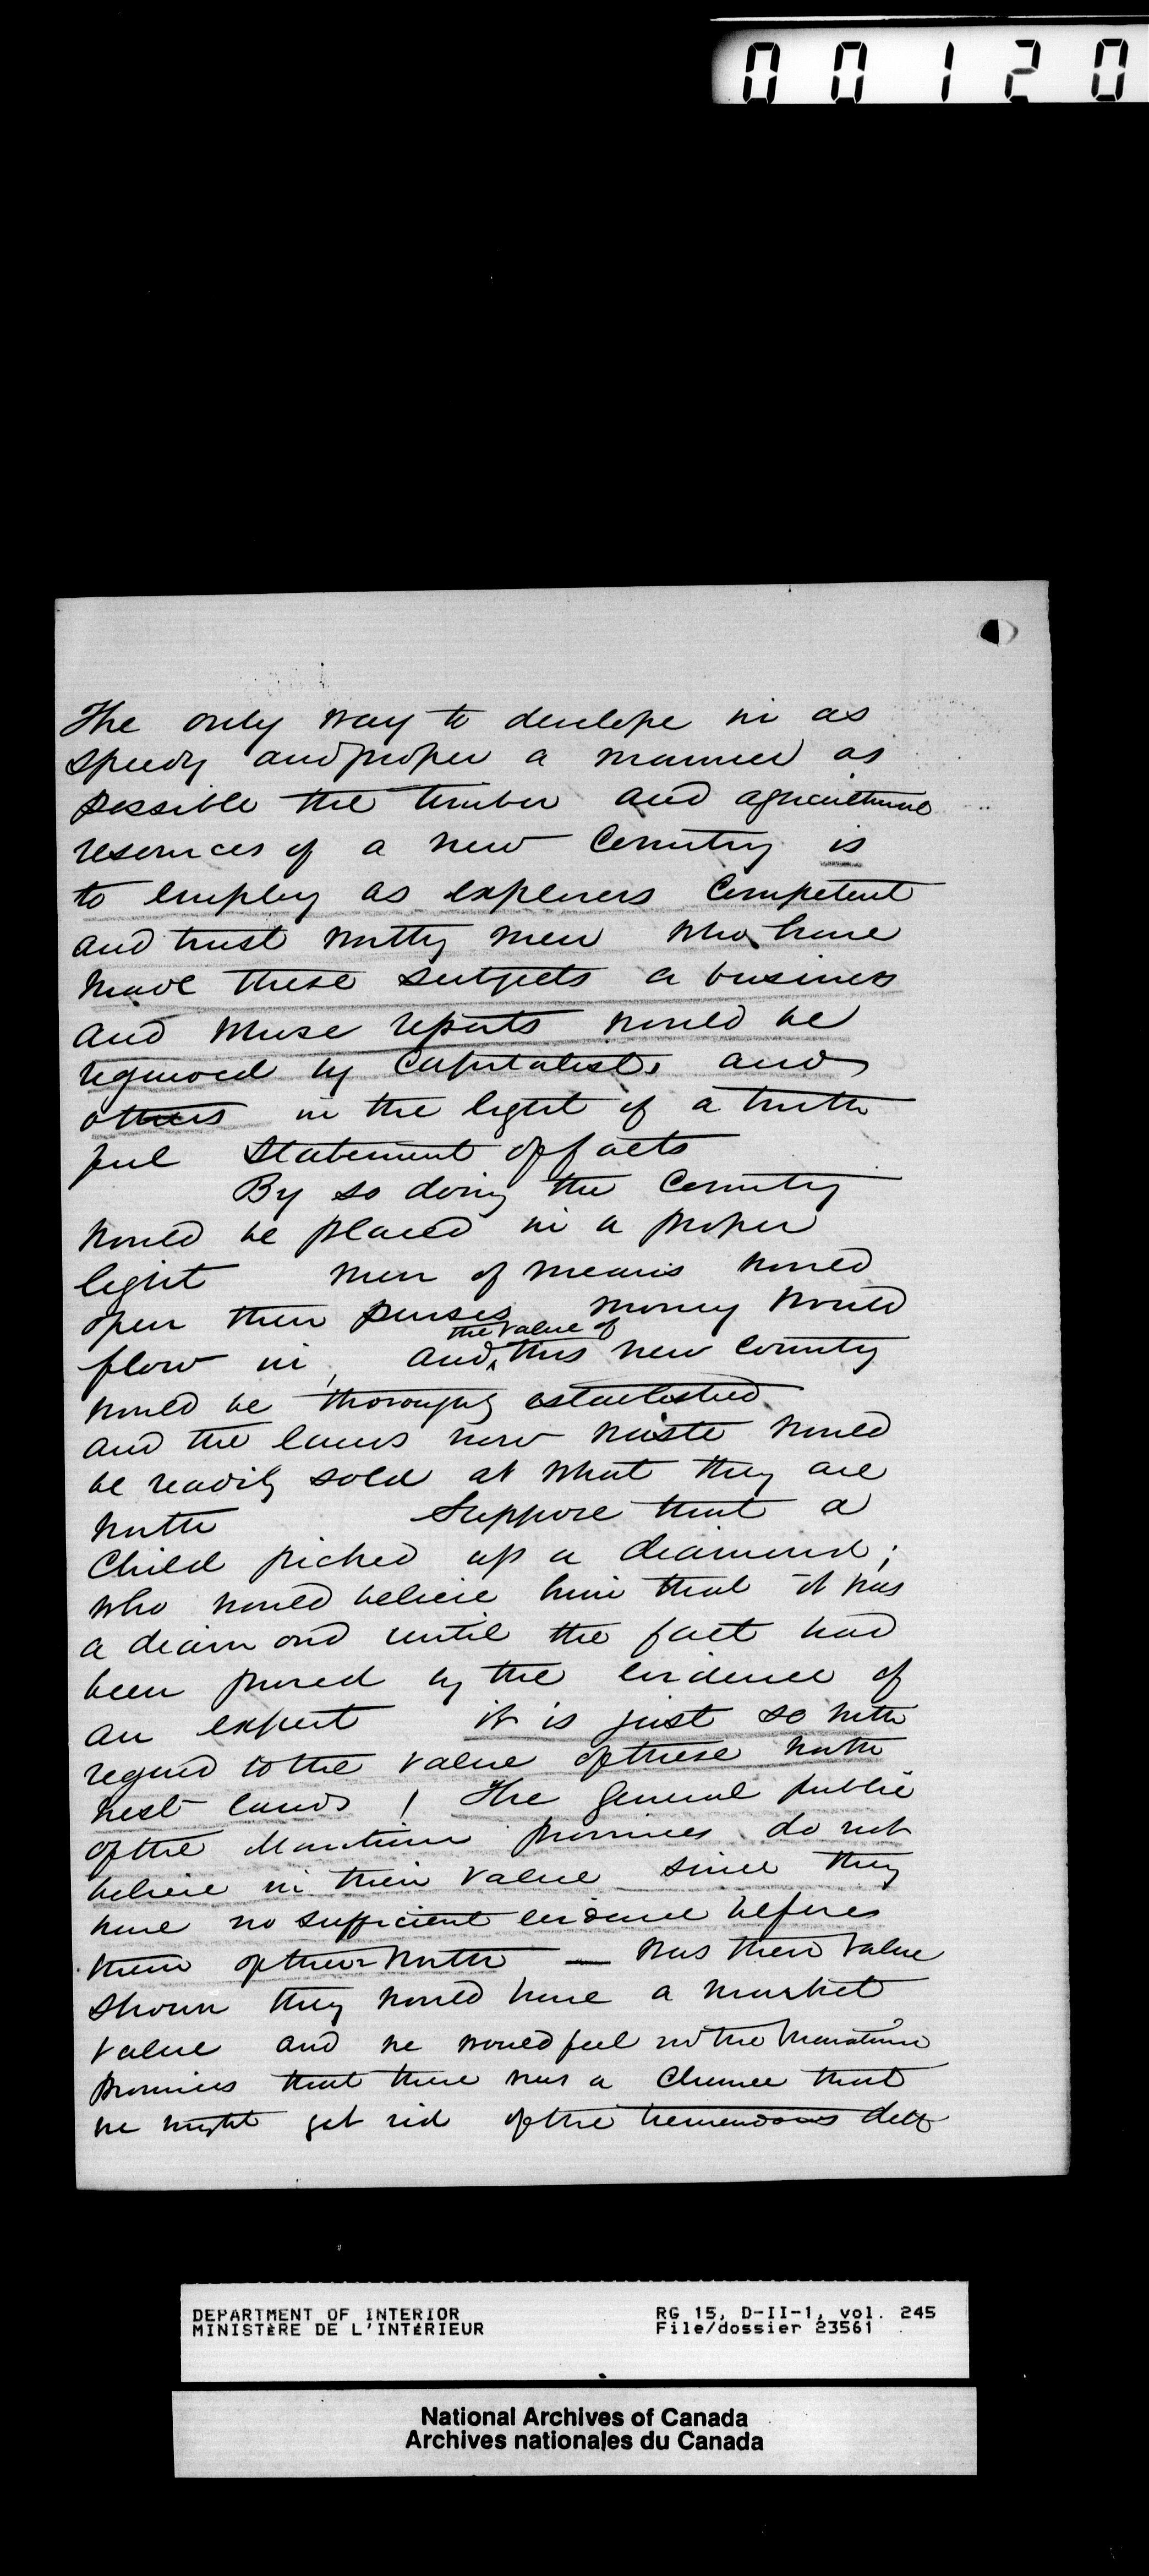 00120
The only way to develope in as
speedy and proper a manner as
possible the timber and agricultural
resources of a new Country is
to employ as explorers Competent
and trust worthy men who have
made these subjects a business
and whose reports would be
regarded by Capitalists and
others in the light of a truth
ful Statement of facts
By so doing the Country
would be placed in a proper
light men of means would
open their purses money would
the value of
flow in, and ^ this new Country
would be thoroughly established
and the lands now waste would
be readily sold at what they are
worth Suppose that a
Child picked up a diamond;
who would believe him that it was
a diamond until the fact had
been proved by the evidence of
an expert it is just so with
regard to the value of these North
West lands ! The General public
of the Maritime provinces do not
believe in their value since they
have no sufficient evidence before
them of their worth — Was their value
shown they would have a market
value and we would feel in the Maritime
provinces that there was a Chance that
we might get rid of the tremendous debt
DEPARTMENT OF INTERIOR
MINISTÈRE DE L'INTÉRIEUR
RG 15, D-II-1, vol. 245
File/dossier 23561
National Archives of Canada
Archives nationales du Canada